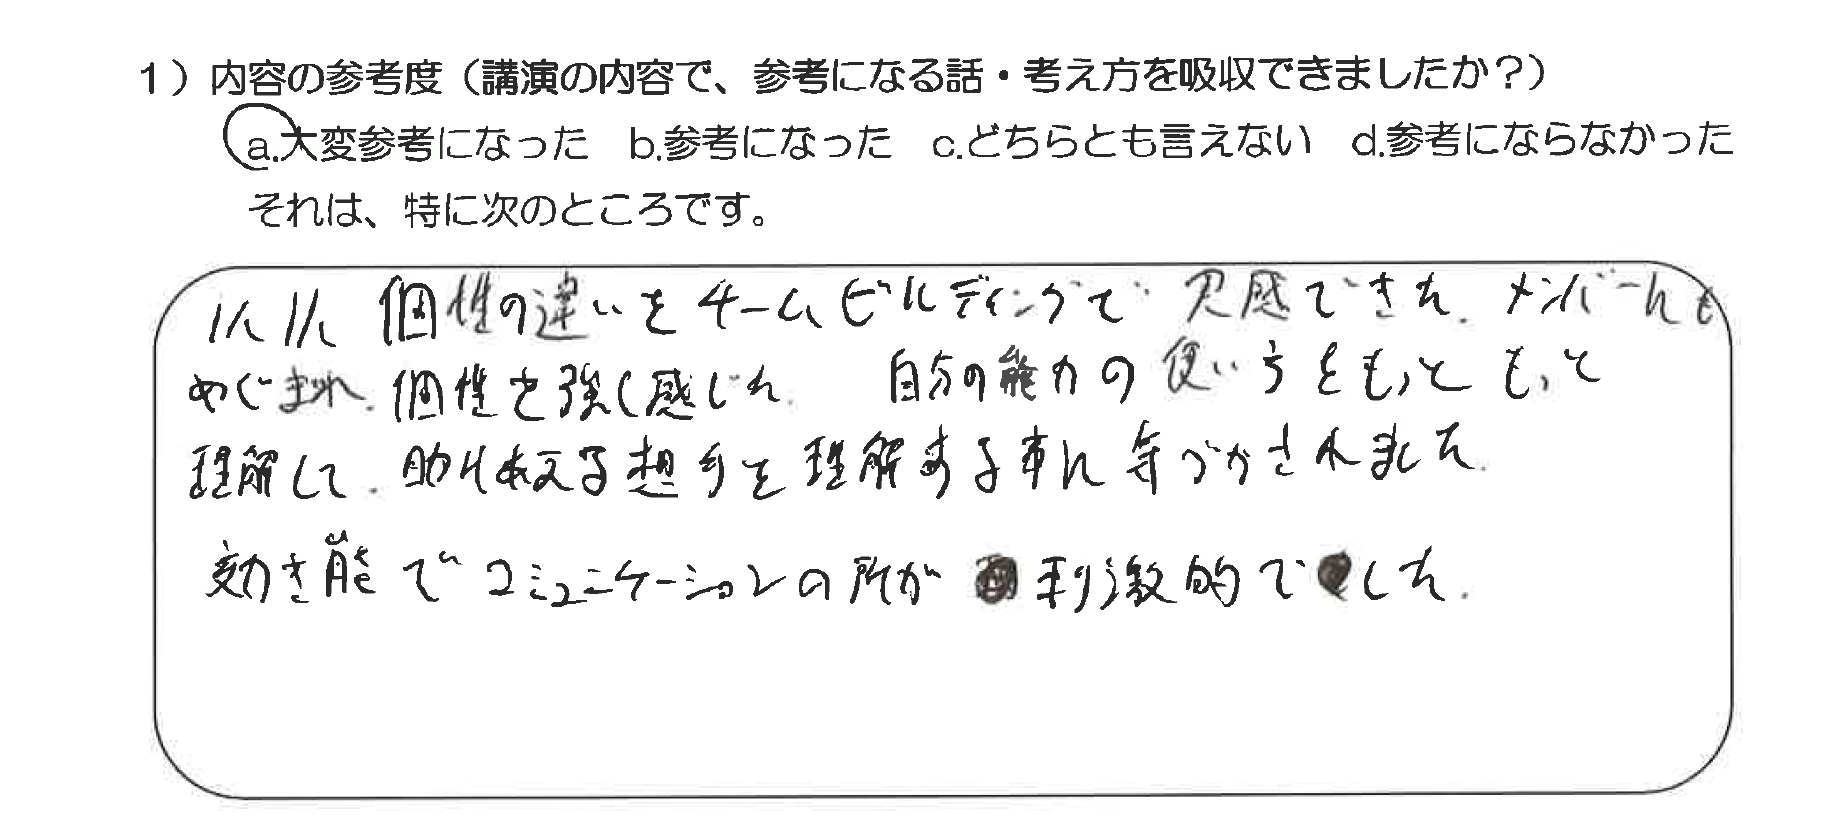 1）内容の参考度（講演の内容で、参考になる話・考え方を吸収できましたか？）
a.大変参考になった　b.参考になった　c.どちらとも言えない　d.参考にならなかった
それは、特に次のところです。
1人1人 個性の違いをチームビルディングで 実感できた. メンバーにも
めぐまれ. 個性を強く感じた. 自分の能力の使い方をもっと もっと
理解して. 助け あえる 想 を 理解する事に 気づかされました.
効き能でコミュニケーションの所が 刺激的でした.